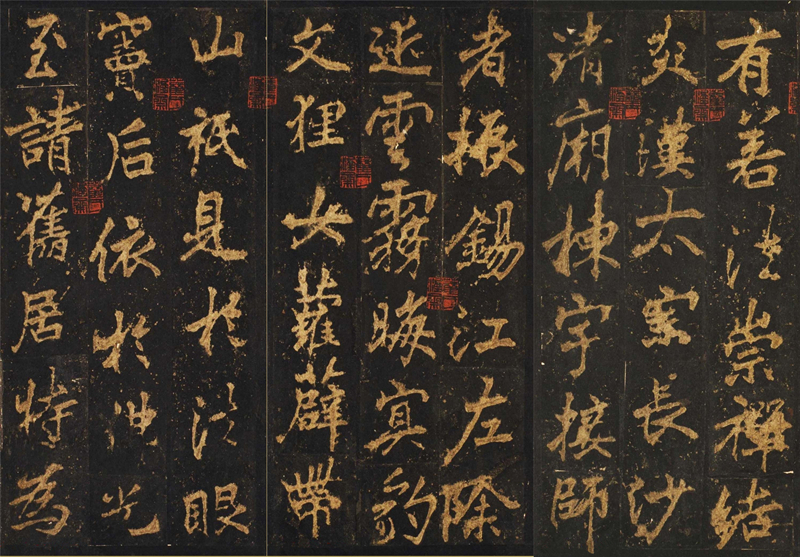 有若法崇禪結
炎漢太宗長沙
清廟棟宇接師
者振錫江左除
雲霧晦冥豹
文狸女蘿薜帶
山祇見於法眼
竇后依於佛光
至請舊居特為